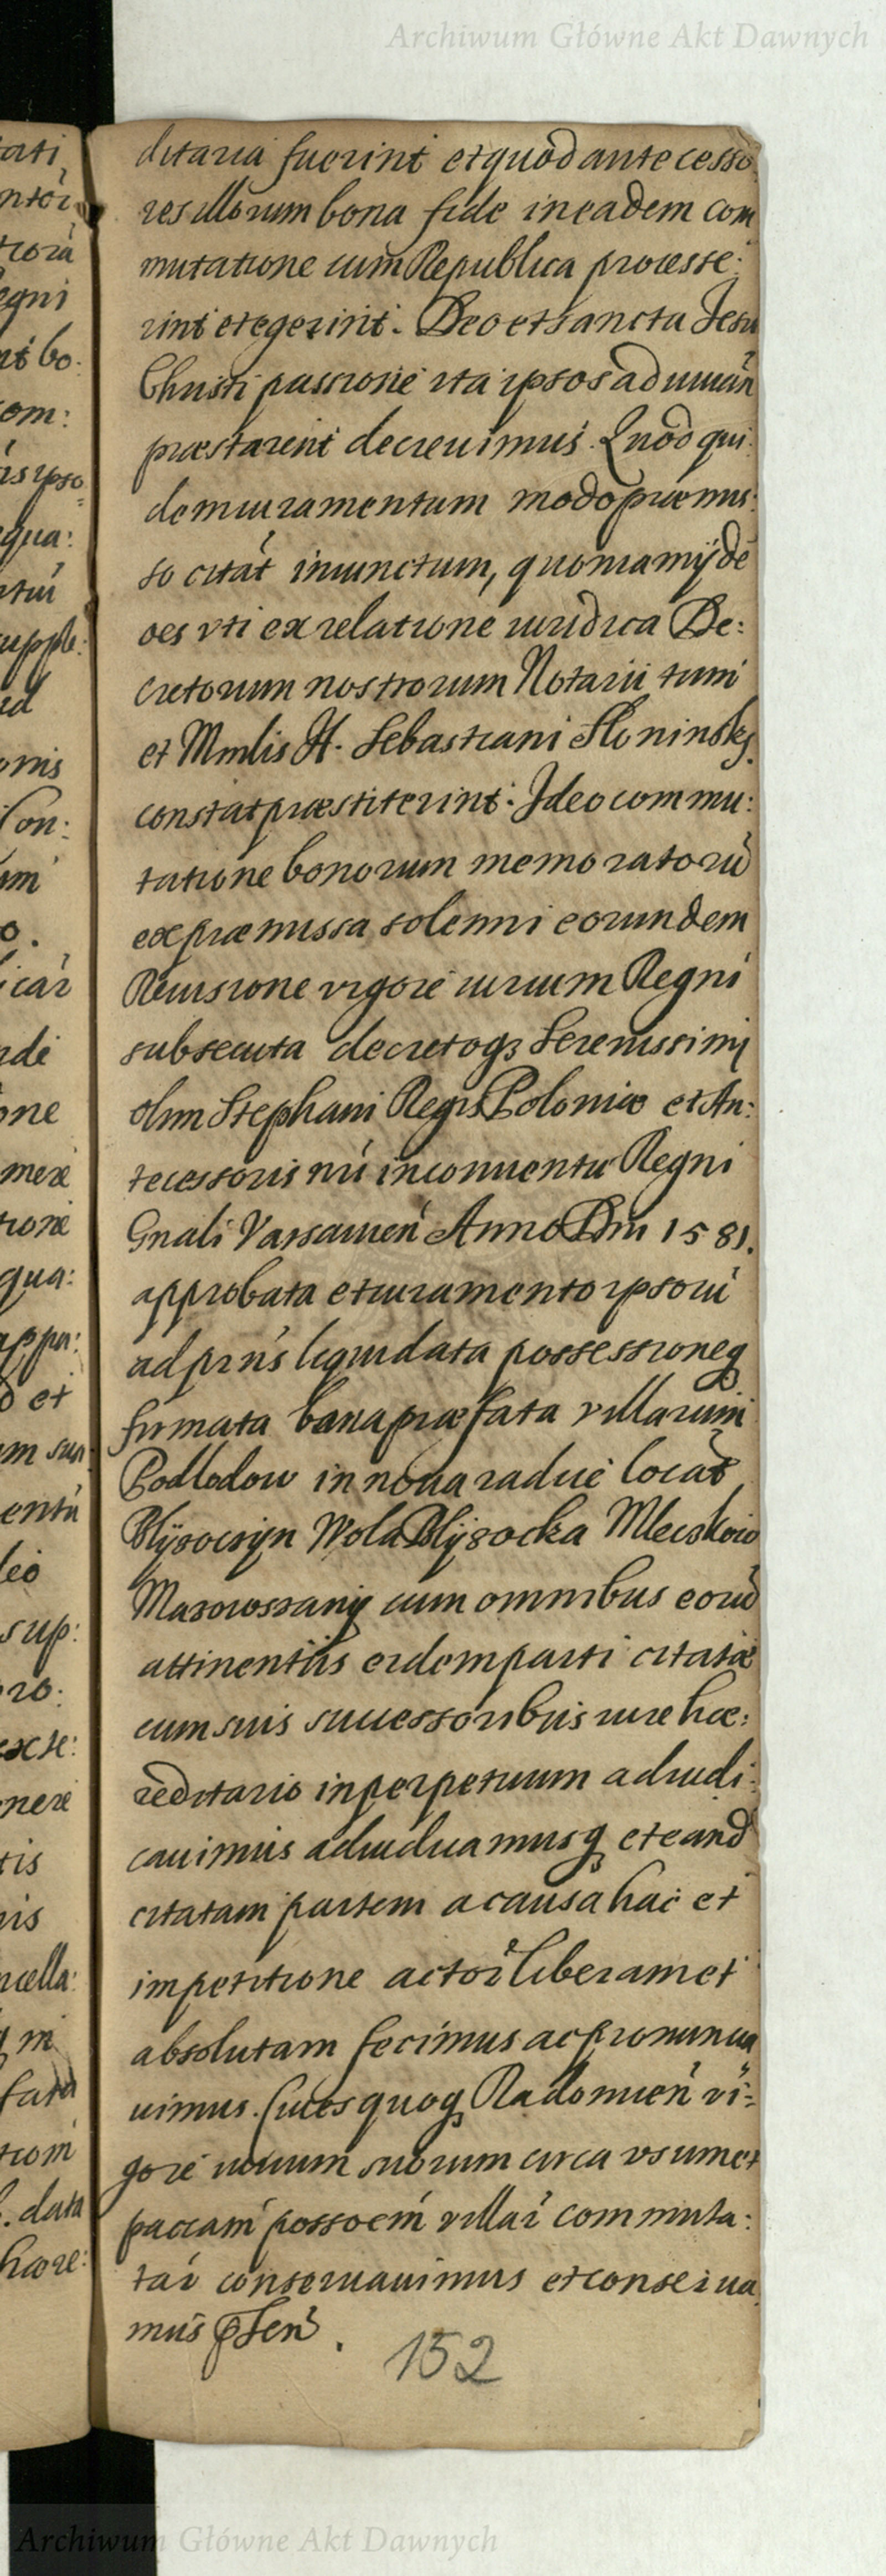 Archiwum Główne Akt Dawnych
ditaria fuerint et quod antecesso
res illorum bona fide in eadem com
mutatione cum Republica processe:
rint et egerint. Deo et sancta Jesu
Christi passione ita ipsos adiuuan
præstarent decreuimus. Quod qui:
dem iuramentum modo præmis:
so citat iniunctum, quoniam ijdē
oēs vti ex relatione iuridica De:
cretorum nostrorum Notarii tum
et Mmlis H. Sebastiani Sloninskj
constat præstiterint. Ideo commu:
tatione bonorum memoratorū
ex præmissa solenni eorundem
Reuisione vigore iurium Regni
subsecuta decretoq3 Serenissimj
olim Stephani Regis Poloniæ et An:
tecessoris nri in conuentu Regni
Gnali Varsauien Anno Dni 1581.
approbata et iuramento ipsorū
ad prns liquidata possessioneq
firmata bona præfata villarum
Podlodow in noua radue locat
Blÿsocsÿn Wola Blÿsocka Mleczkow
Mazowszany cum omnibus eorū
attinentiis eidem parti citatæ
cum suis successoribus iure hæ:
reditario in perpetuum adiudi:
cauimus adiudicamusq et eand
citatam partem a causa hac et
impetitione actor liberam et
absolutam fecimus ac pronuncia
uimus. Ciues quoq Radomien vi=
gore iurium suorum circa vsum et
paccam possoem villar commuta:
tar conseruauimus et conserua
mus pSen.
152
Archiwum Główne Akt Dawnych